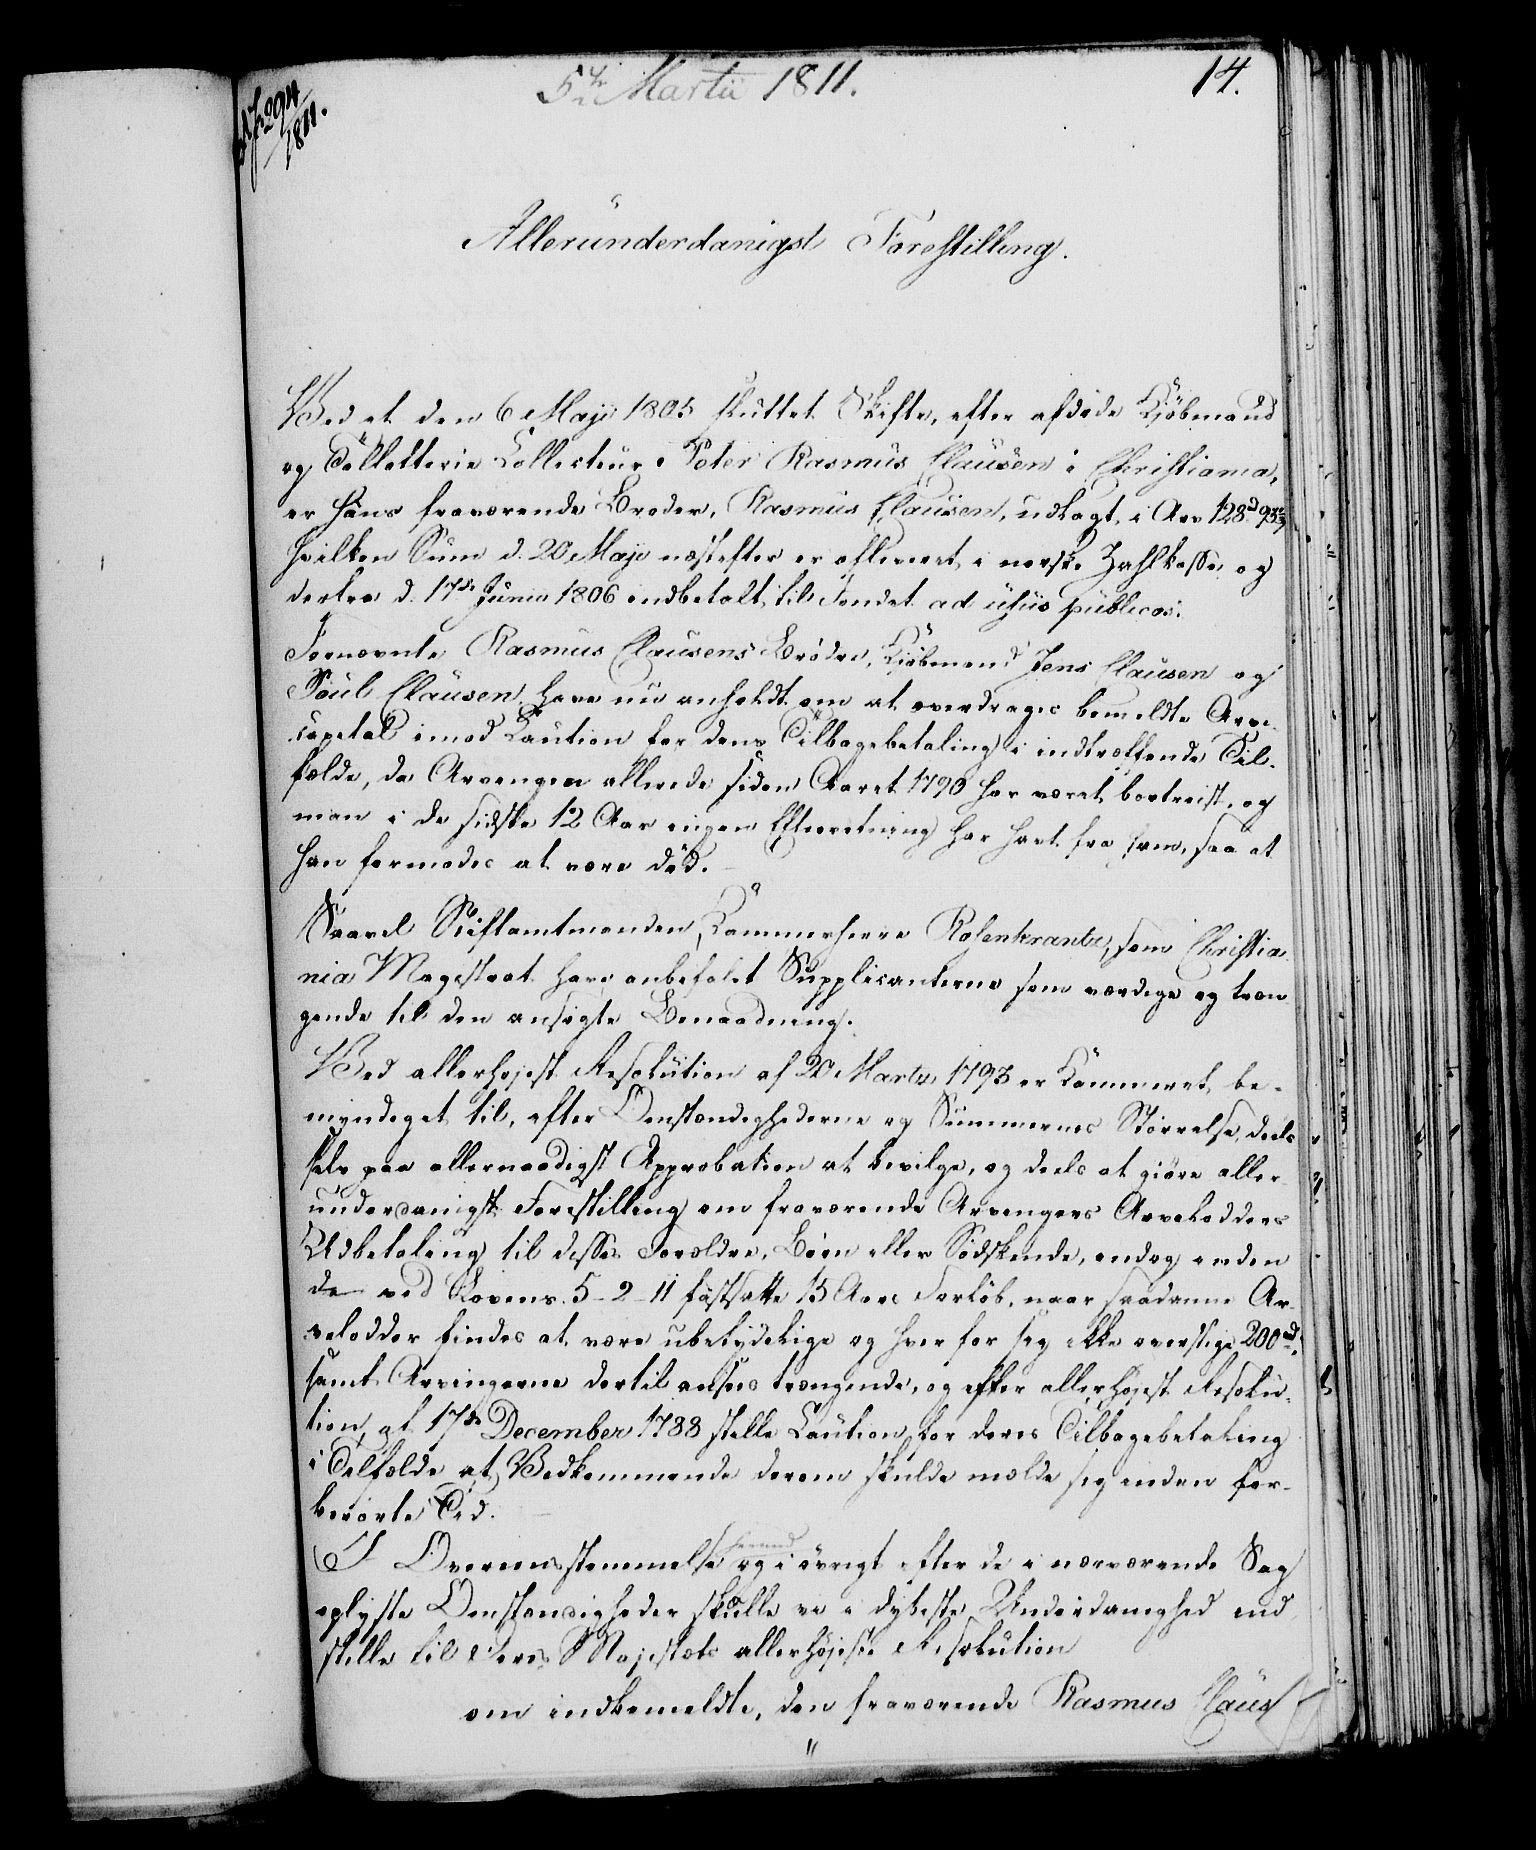 5te Martii 1811.
14.
294/1811.
Allerunderdanigst Forestilling.
Ved et den 6 Maji 1805 sluttet Skifte, efter afdøde Kjøbmand
og Tallotterie Collecteur Peter Rasmus Clausen i Christiania,
er hans fraværende Broder, Rasmus Clausen, udlagt i Arv 128rd 95
hvilken Sum d. 20 Maji næstefter er afleveret i norske Zahlkasse og
derfra d. 17de Junii 1806 indbetalt til Fondet ad usus publicos.
Fornævnte Rasmus Clausens Brødre, Kjøbmand Jens Clausen og
Poul Clausen, have nu anholdt om at overdrages bemeldte Arve-
capital imod Caution for dens Tilbagebetaling i indtræffende Til-
fælde, da Arvengen allerede siden Aaret 1790 har været bortreist, og
man i de sidste 12 Aar ingen Efterretning har havt fra ham, saa at
han formodes at være død.
Saavel Stiftamtmanden, Kammerherre Rosenkrantz, som Christia-
nia Magistrat have anbefalet Supplicanterne som værdige og træn-
gende til den ansøgte Benaadning.
Ved allerhøjest Resolution af 20 Martii 1793 er Kammeret be-
myndiget til, efter Omstændighederne og Summernes Størrelse, deels
selv paa allernaadigst Approbation at bevilge, og deels at giøre aller-
underdanigst Forestilling om fraværende Arvengers Arvelodders
Udbetaling til disses Forældre, Børn eller Sødskende, endog inden
de ved Lovens 5-2-11 fastsatte 15 Aars Forløb, naar saadanne Ar-
velodder findes at være ubetydelige og hver for sig ikke overstige 200rd,
samt Arvingerne dertil ansees trængende, og efter allerhøjest Resolu-
tion af 17de December 1788 stille Caution for deres Tilbagebetaling
i Tilfælde at Vedkommende derom skulde melde sig inden for-
berørte Tid.
I Overeensstemmelse herved og i øvrigt efter de i nærværende Sag
oplyste Omstændigheder skulle vi i dybeste Underdanighed ind-
stille til Deres Majestæts allerhøjeste Resolution
om indbemeldte, den fraværende Rasmus Claus
"